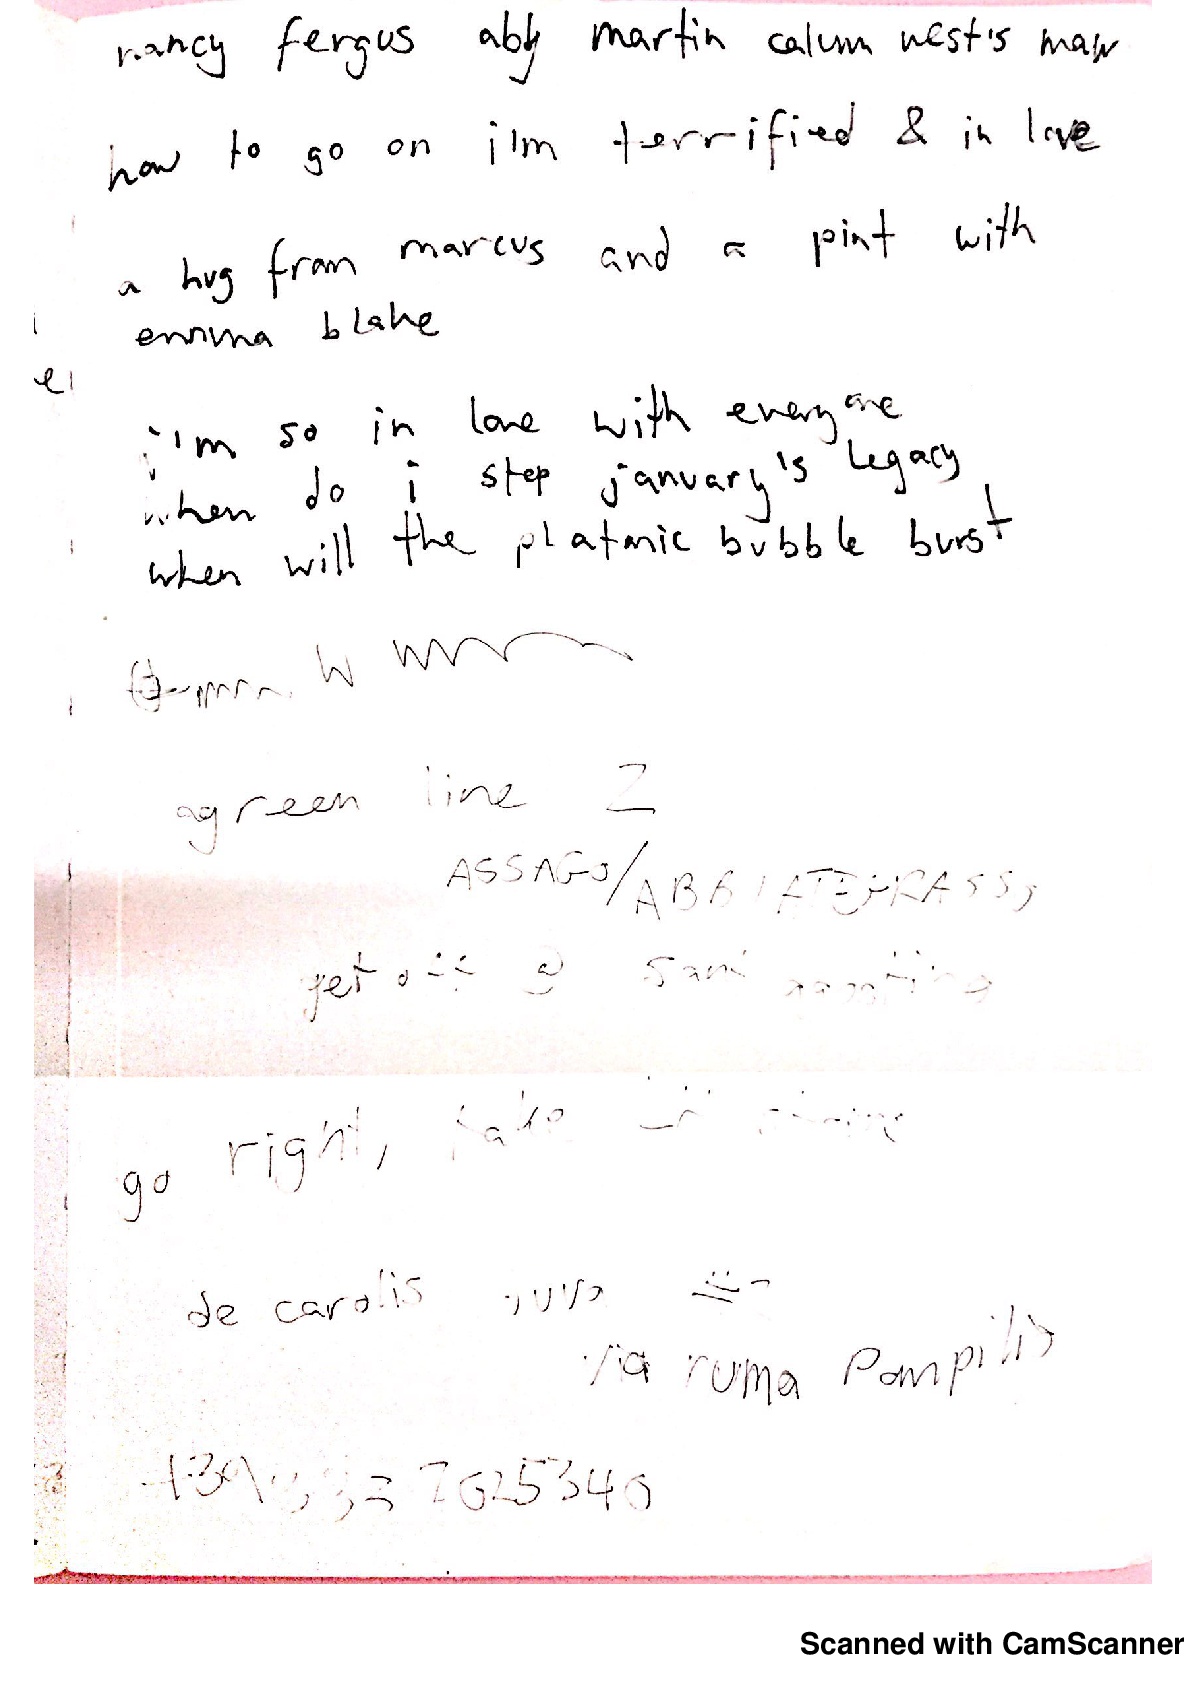 nancy fergus aby martin calum nest's maw
how to go on i'm terrified & in love
a hug from marcus and a pint with
emma blake
i'm so in love with everyone
when do i step january's legacy
when will the platonic bubble burst
agreen line 2
ASSAGO/ABBIATEGRASSO
get off @ sant
go right, take
de carolis
via numa Pompilio
7625340
Scanned with CamScanner